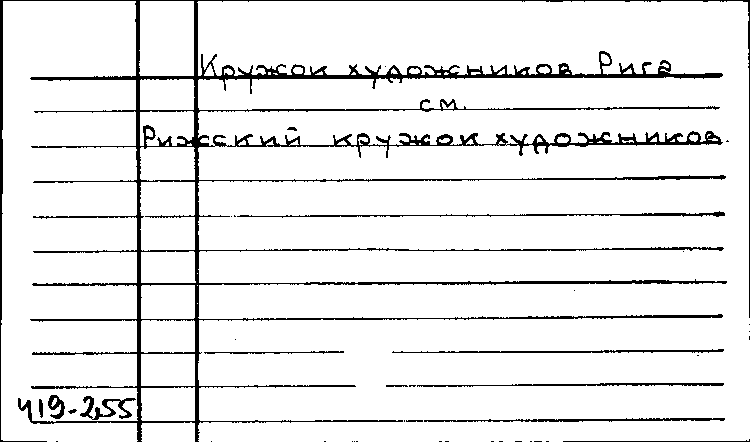 Кружок художников Рига
см.
Рижский кружок художников
419-255